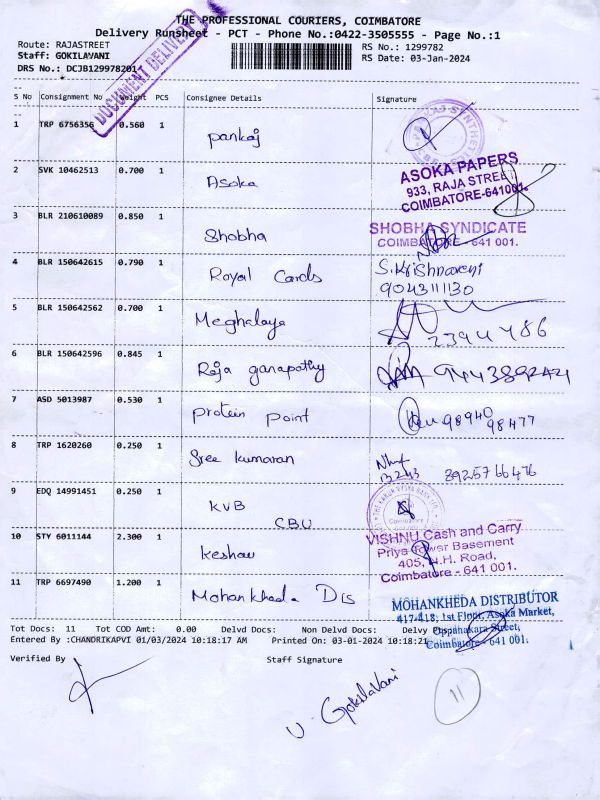 THE PROFESSIONAL COURIERS, COIMBATORE
Delivery Runsheet - PCT - Phone No.:0422-3505555 - Page No.:1
Route: RAJASTREET
RS No.: 1299782
Staff: GOKILAVANI
RS Date: 03-Jan-2024
DRS No.: DCJB129978201
DOCUMENT DELIVERY
S No Consignment No Weight PCS Consignee Details Signature
1 TRP 6756356 0.560 1 Pankaj
2 SVK 10462513 0.700 1 Asoka
ASOKA PAPERS
933, RAJA STREET
COIMBATORE-641001.
3 BLR 210610089 0.850 1 Shobha
SHOBHA SYNDICATE
COIMBATORE - 641 001.
4 BLR 150642615 0.790 1 Royal Cards S.Krishnaveni
9043111130
5 BLR 150642562 0.700 1 Meghalaya 2394486
6 BLR 150642596 0.845 1 Raja ganapathy
7 ASD 5013987 0.530 1 Protein Point 98940
98477
8 TRP 1620260 0.250 1 Sree kumaran
8925766476
9 EDQ 14991451 0.250 1 KVB
CBU
10 STY 6011144 2.300 1 Keshav
VISHNU Cash and Carry
Priya Tower Basement
405, N.H. Road,
Coimbatore - 641 001.
11 TRP 6697490 1.200 1 Mohankheda Dis
MOHANKHEDA DISTRIBUTOR
417-418, 1st Floor, Asoka Market,
Street,
Coimbatore - 641 001.
Tot Docs: 11 Tot COD Amt: 0.00 Delvd Docs: Non Delvd Docs: Delvy
Entered By :CHANDRIKAPVI 01/03/2024 10:18:17 AM Printed On: 03-01-2024 10:18:21
Verified By Staff Signature
V. Gokilavani
11